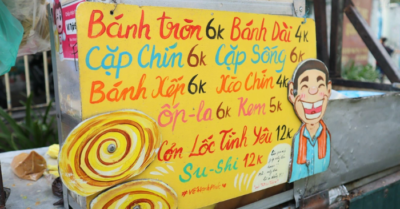 Bánh tròn 6k Bánh Dài 4k
Cặp Chín 6k Cặp Sống 6k
Bánh Xếp 6k Kẹo Chín 4k
ốp-la 6k Kem 5k
Cơn Lốc Tình Yêu 12k
Su-shi 12k